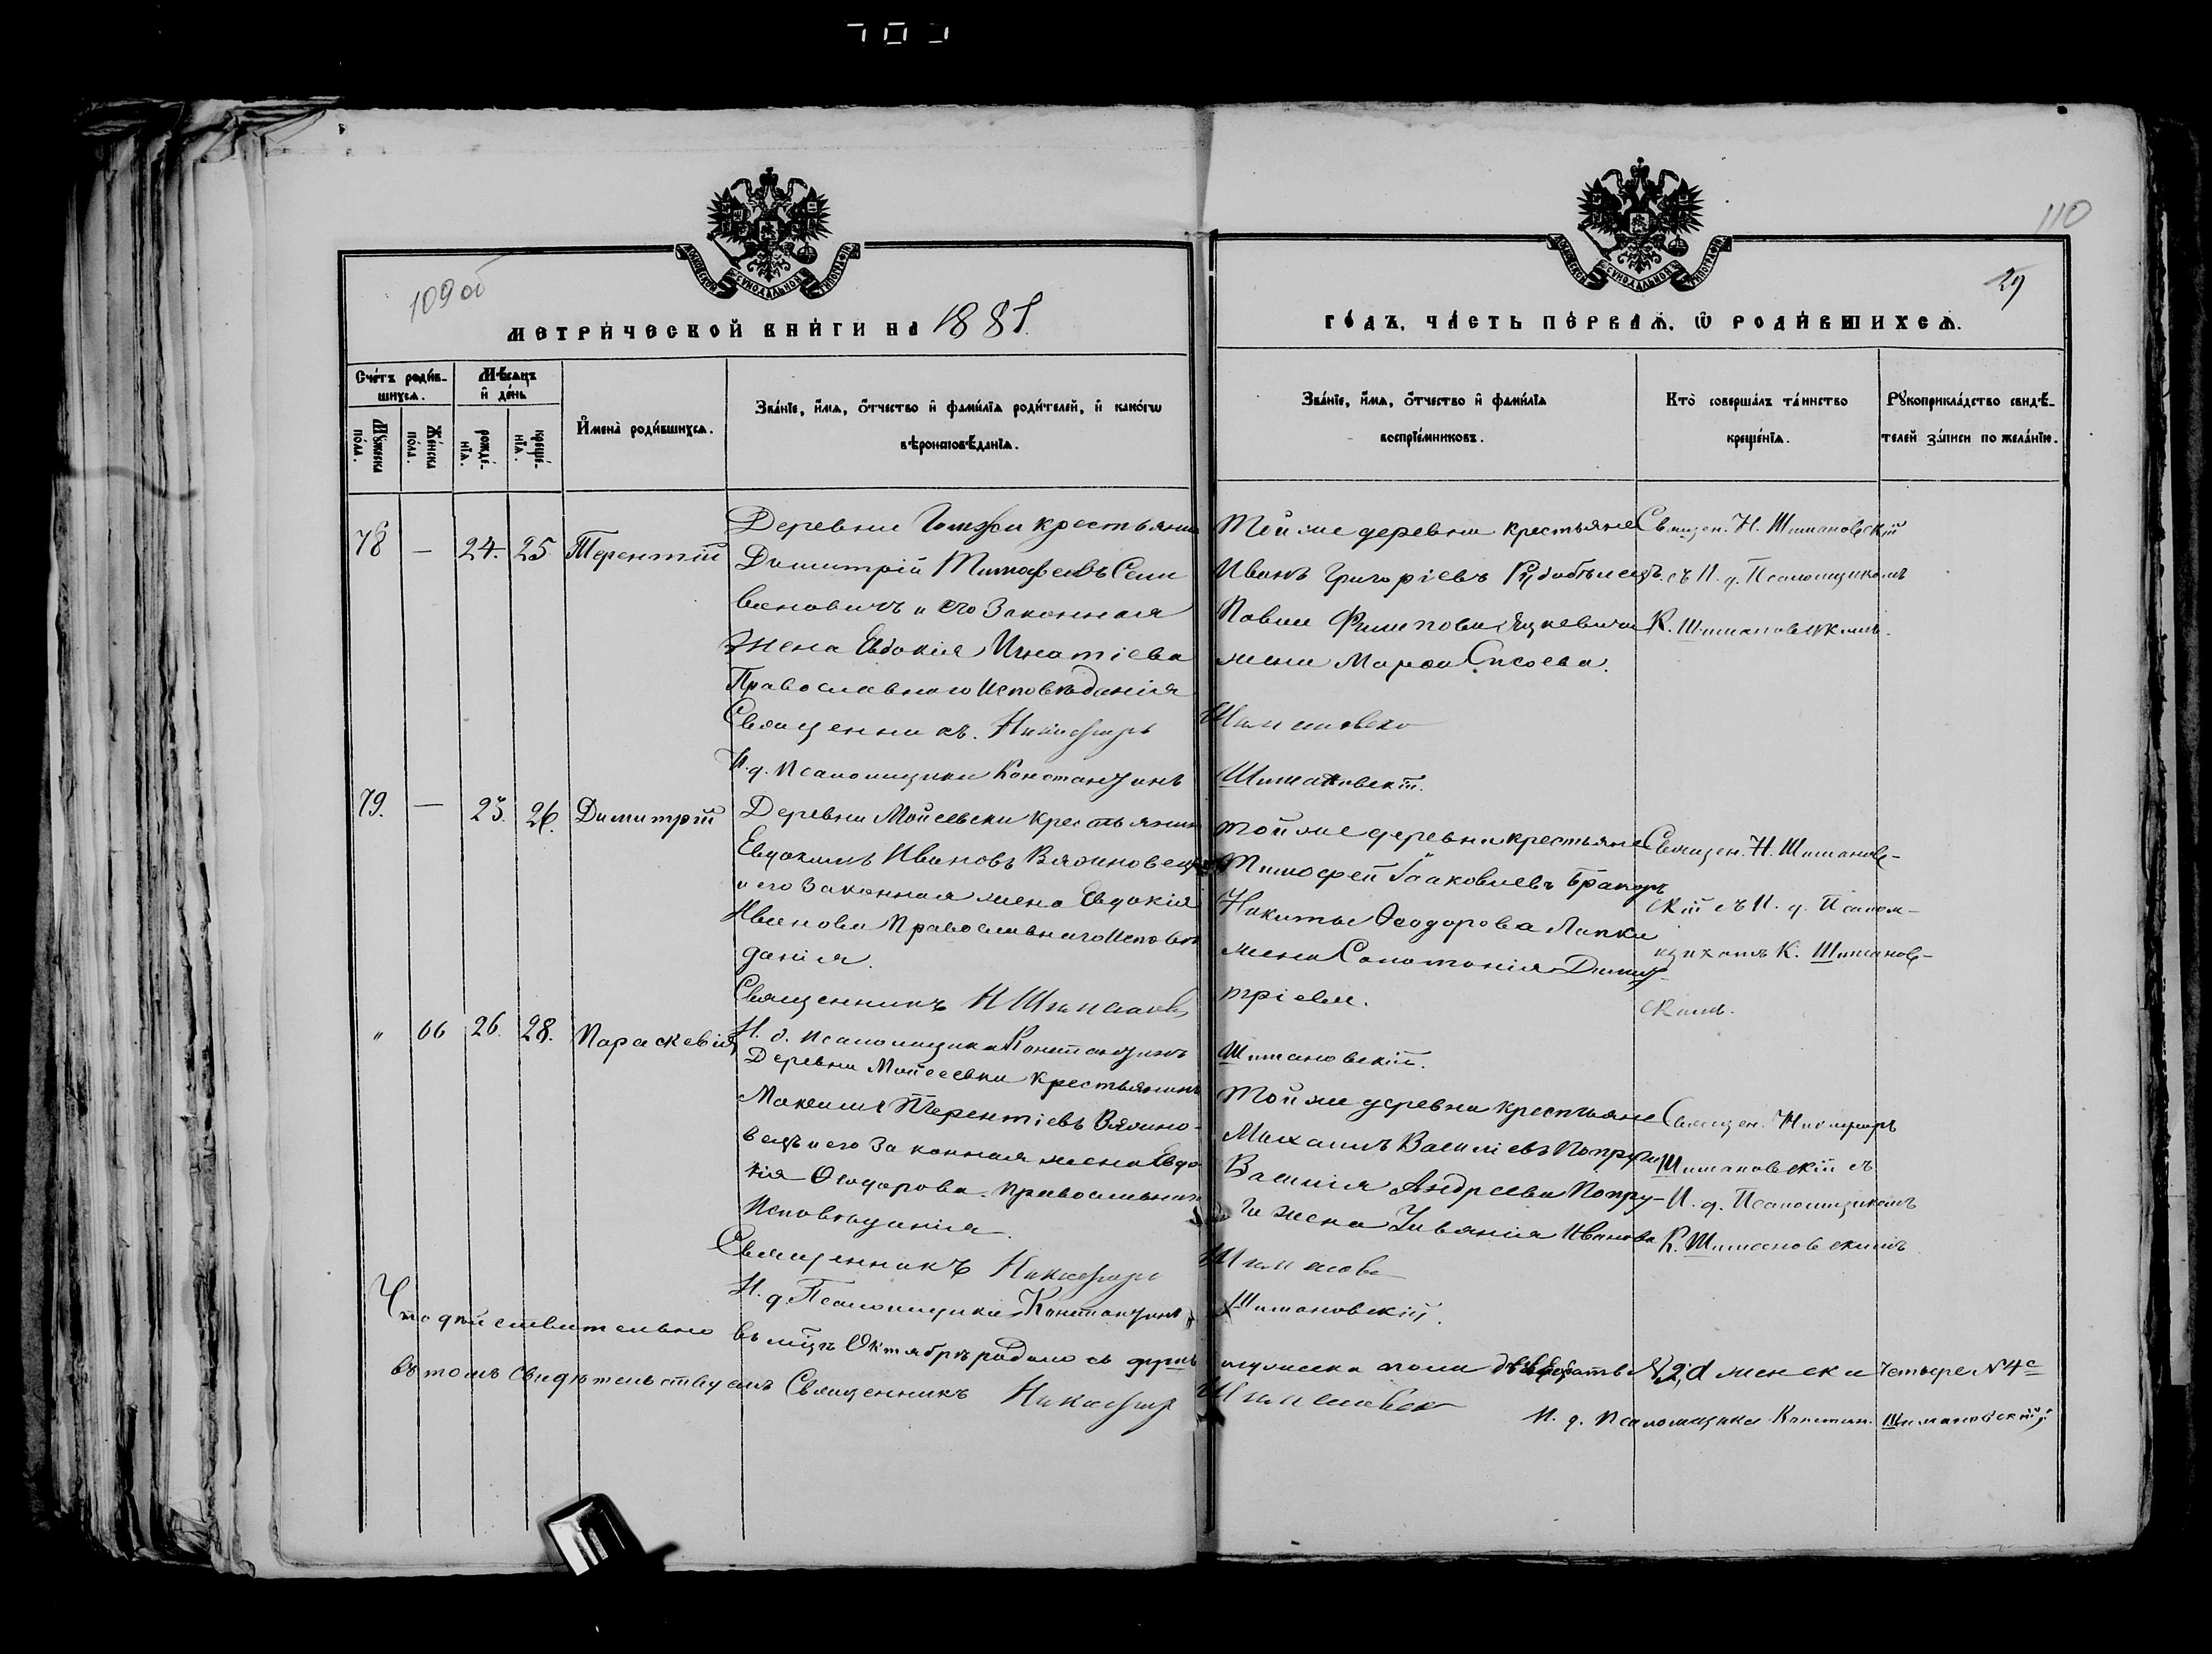 109 об
110
29
МОСКОВСКОЙ СѴНОДАЛЬНОЙ ТИПОГРАФІИ
МОСКОВСКОЙ СѴНОДАЛЬНОЙ ТИПОГРАФІИ
МЕТРИ́ЧЕСКОЙ КНИ́ГИ НА 1881.
ГО́ДЪ, ЧА́СТЬ ПЕ́РВАѦ, Ѽ РОДИ́ВШИХСѦ.
Сче́тъ роди́в-
шихсѧ.
Мѣ́сѧцъ
и҆ де́нь
Мꙋ́жеска
по́ла.
Же́нска
по́ла.
рожде́-
нїѧ.
креще́-
нїѧ.
И҆мена̀ роди́вшихсѧ.
Зва́нїе, и҆́мѧ, ѻ҆́тчество и҆ фами́лїѧ роди́телей, и҆ како́гѡ
вѣроисповѣ́данїѧ.
Зва́нїе, и҆́мѧ, ѻ҆́тчество и҆ фами́лїѧ
воспрїе́мниковъ.
Кто̀ соверша́лъ та́инство
креще́нїѧ.
Рꙋкоприкла́дство свидѣ́-
телей за́писи по жела́нїю.
78 — 24. 25. Терентій
Деревни крестьянин
Димитрій Тимофеевъ Сели
вановичъ и его Законная
жена Евдокія Игнатіева
Православнаго Исповѣданія
Священникъ. Никифоръ
И. д. Псаломщика Константинъ
Той же деревни крестьяне
Иванъ Григоріевъ
Павла Филипова Яцкевича
жена Марѳа Сисоева.
Шиманов
Шимановскій.
Священ. Н. Шимановскій
съ И. д. Псаломщикомъ
К. Шимановскимъ.
79. — 23. 26. Димитрій
Деревни Мойсеевки Крестьянин
Евдокимъ Ивановъ Вяжновец
и его Законная жена Евдокія
Иванова Православнаго Исповѣ
данія.
Священникъ Н Шиманов
И. д. Псаломщика Константинъ
Той же деревни крестьяне
Тимофей Іаковлевъ
Никиты Ѳеодорова Лапки
жена Соломонія Дими
тріева.
Шимановскій.
Священ. Н. Шиманов-
скій съ И. д. Псалом-
щикомъ К. Шиманов-
скимъ.
" 66 26. 28. Параскевія
Деревни Мойсеевки Крестьянинъ
Максимъ Терентіевъ Вяжно-
вецъ и его Законная жена Евдо
кія Ѳеодорова. Православнаго
Исповѣданія.
Священникъ Никифоръ
И. д. Псаломщика Константинъ
Той же деревни крестьяне
Михаилъ Василіевъ Попруга
Василія Андреева Попру-
ги жена Уліянія Иванова
Шиманов
Шимановскій.
Священ. Никифоръ
Шимановскій съ
И. д. Псаломщикомъ
К. Шимановскимъ
Что дѣйствительно въ мцѣ Октябрѣ родилось душъ мужеска пола женска четыре №4е
въ томъ свидѣтельствуемъ Священникъ Никифоръ Шимановск
И. д. Псаломщика Констан. Шимановскій